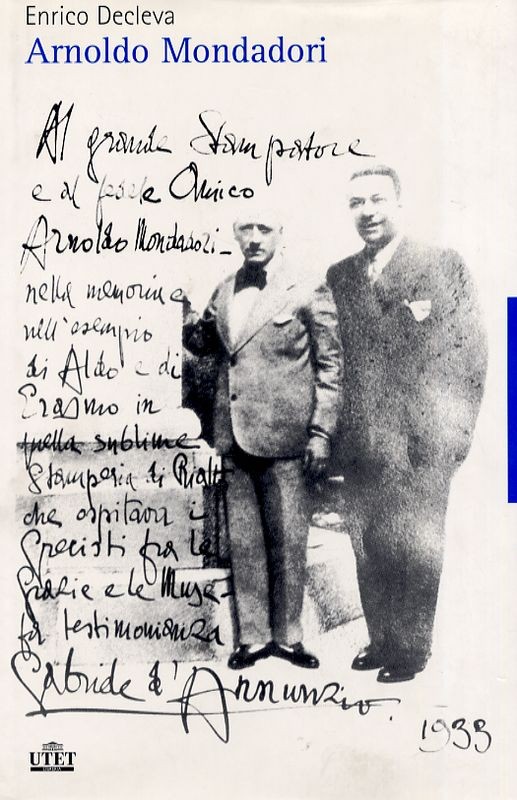 Enrico Decleva
Arnoldo Mondadori
Al grande Stampatore
e al fedele Amico
Arnoldo Mondadori -
nella memoria e
nell'esempio
di Aldo e di
Erasmo in
quella sublime
Stamperia di Rialto
che ospitava i
Grecisti fra le
Grazie e le Muse -
fa testimonianza
Gabriele d'Annunzio
1933
UTET
LIBRERIA